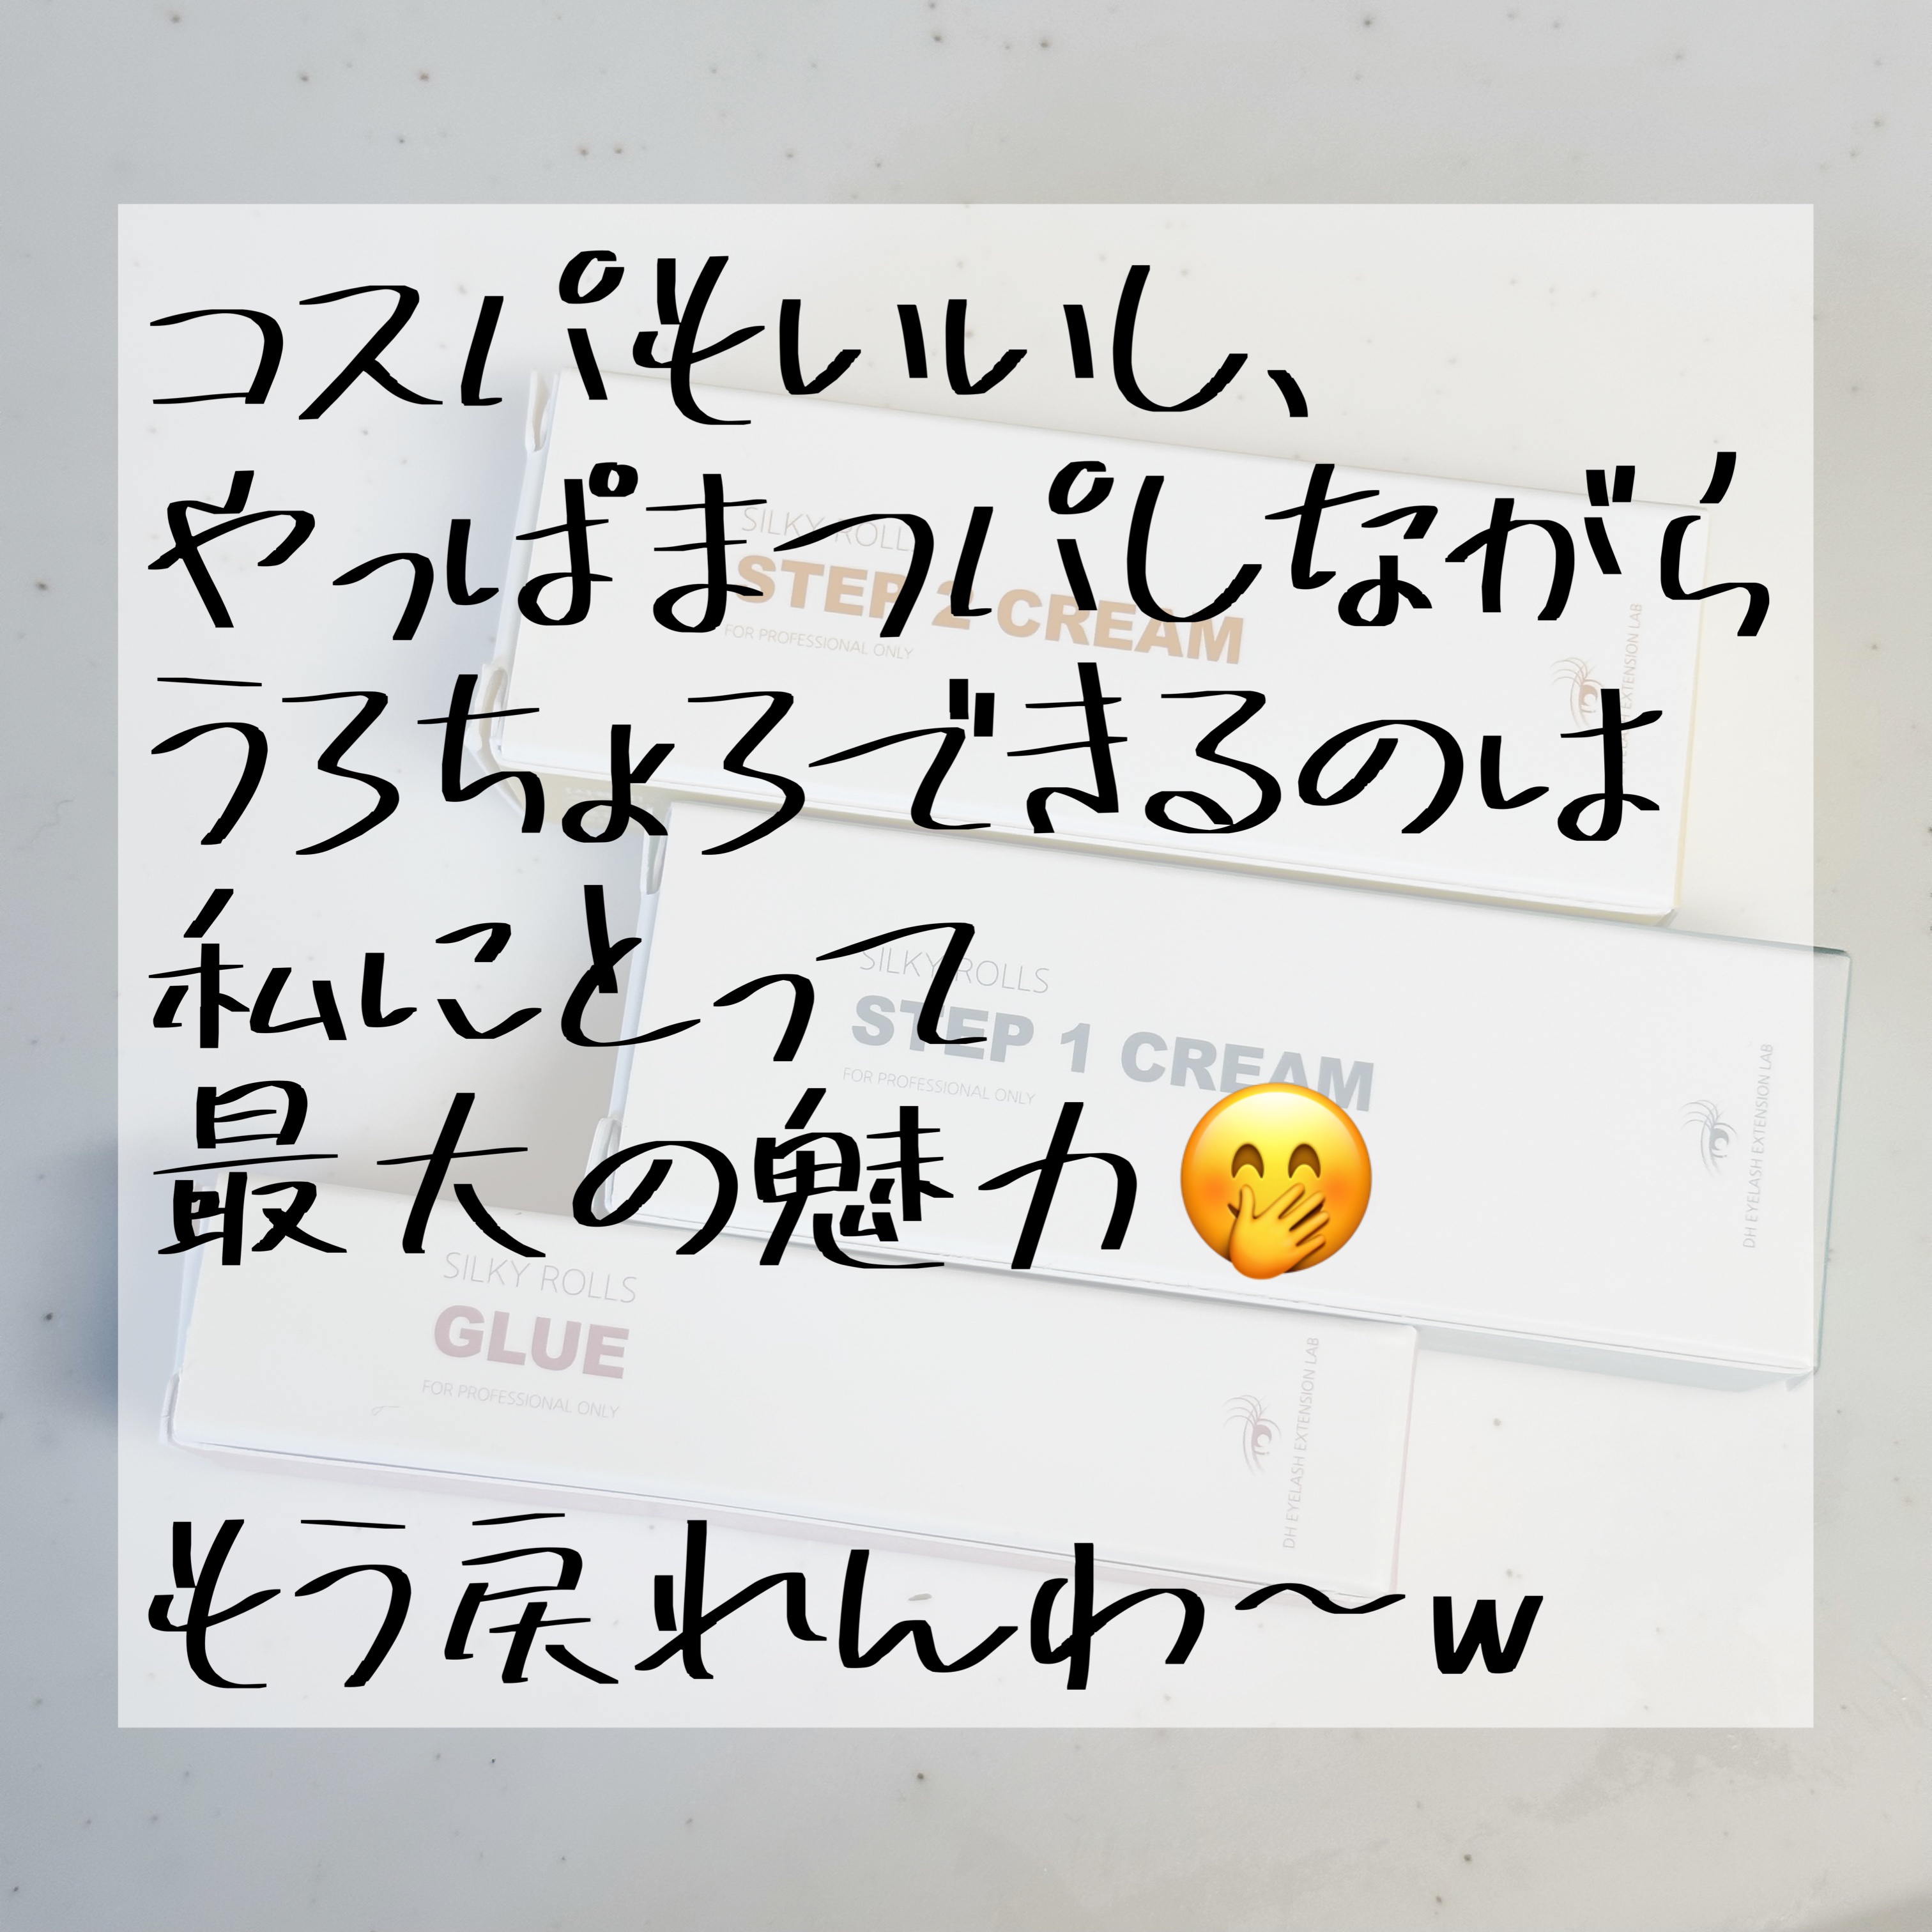 コスパもいいし、
やっぱまつパしながら
うろちょろできるのは
私にとって
最大の魅力🤭
もう戻れんわ〜w
SILKY ROLLS
STEP 2 CREAM
FOR PROFESSIONAL ONLY
EXTENSION LAB
SILKY ROLLS
STEP 1 CREAM
FOR PROFESSIONAL ONLY
DH EYELASH EXTENSION LAB
SILKY ROLLS
GLUE
FOR PROFESSIONAL ONLY
DH EYELASH EXTENSION LAB